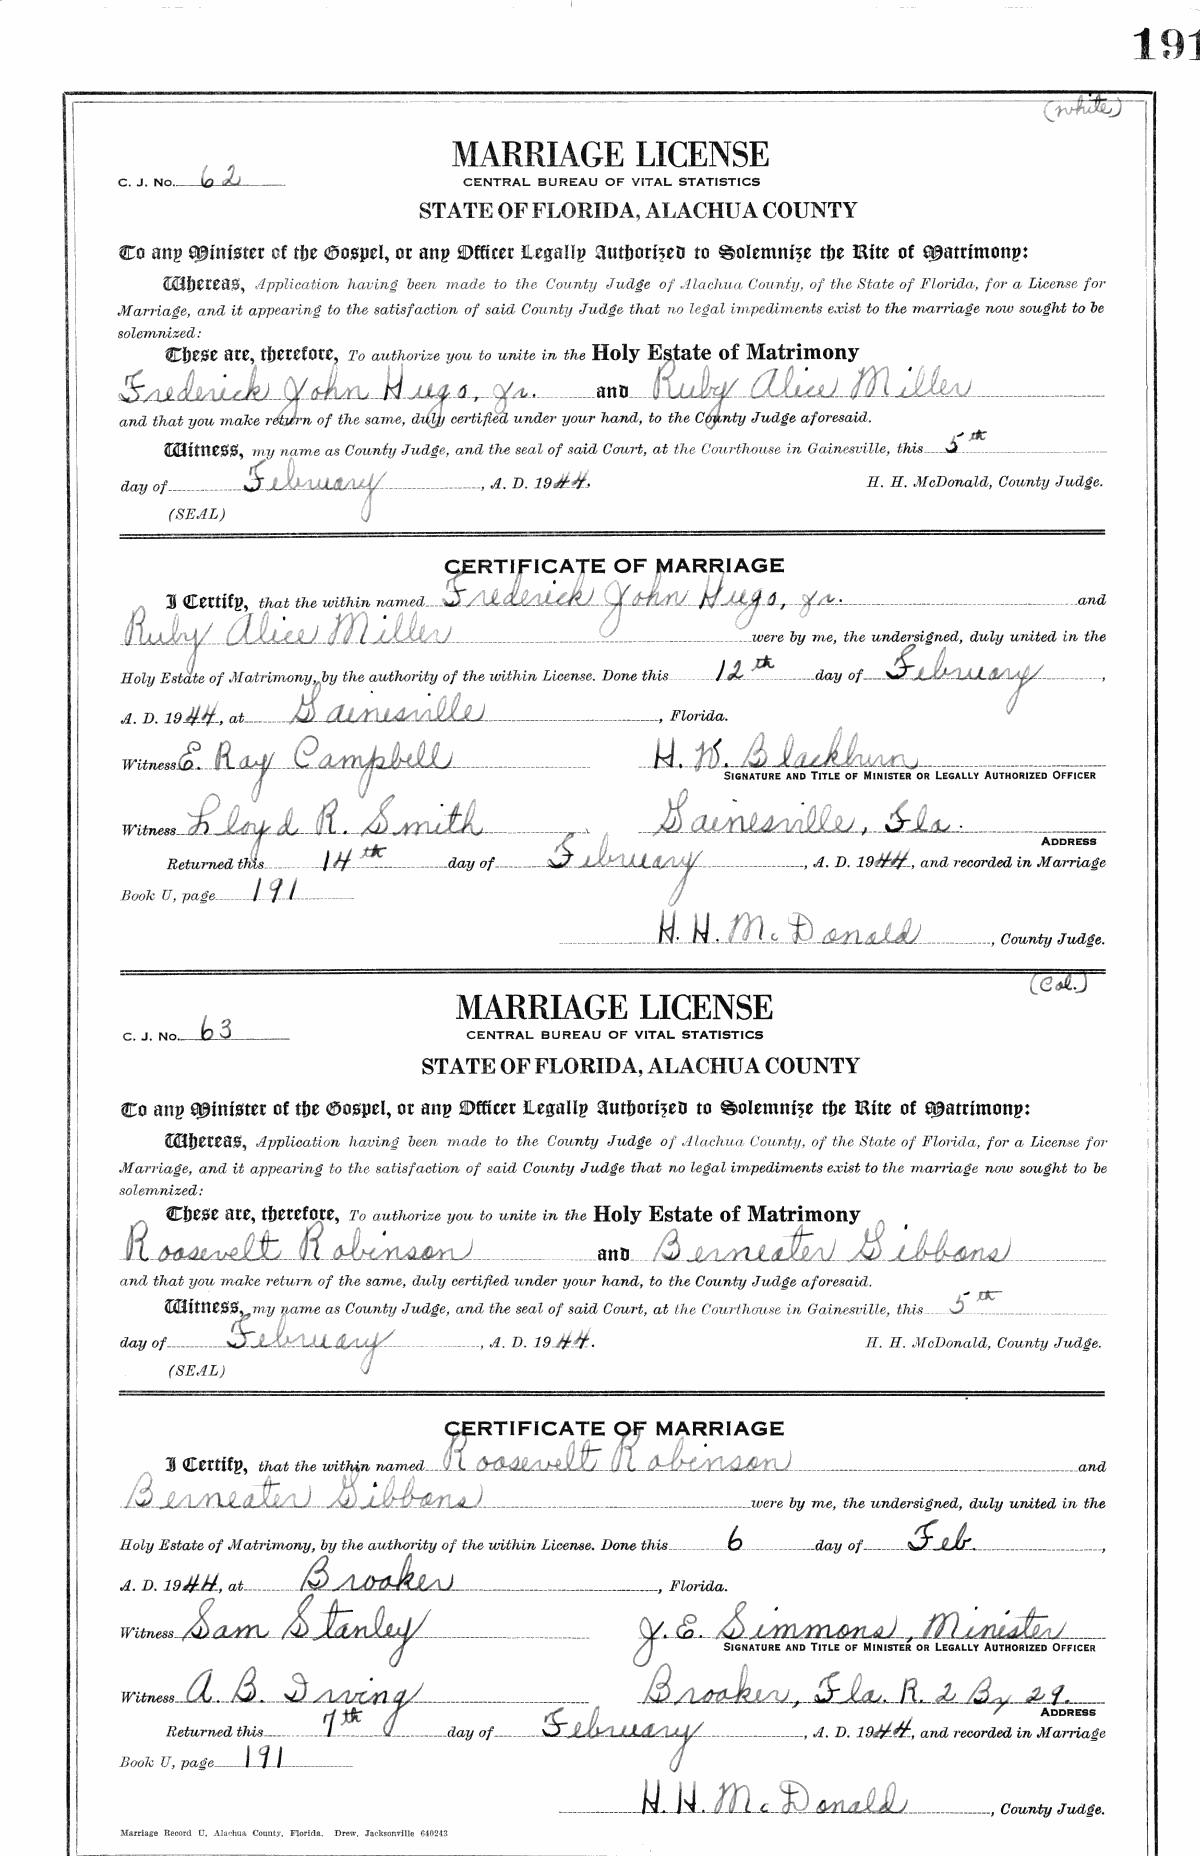 191
(white)
MARRIAGE LICENSE
C. J. No. 62
CENTRAL BUREAU OF VITAL STATISTICS
STATE OF FLORIDA, ALACHUA COUNTY
To any Minister of the Gospel, or any Officer Legally Authorized to Solemnize the Rite of Matrimony:
Whereas, Application having been made to the County Judge of Alachua County, of the State of Florida, for a License for
Marriage, and it appearing to the satisfaction of said County Judge that no legal impediments exist to the marriage now sought to be
solemnized:
These are, therefore, To authorize you to unite in the Holy Estate of Matrimony
Frederick John Hugo, Jr. and Ruby Alice Miller
and that you make return of the same, duly certified under your hand, to the County Judge aforesaid.
Witness, my name as County Judge, and the seal of said Court, at the Courthouse in Gainesville, this 5th
day of February, A. D. 1944. H. H. McDonald, County Judge.
(SEAL)
CERTIFICATE OF MARRIAGE
I Certify, that the within named Frederick John Hugo, Jr. and
Ruby Alice Miller were by me, the undersigned, duly united in the
Holy Estate of Matrimony, by the authority of the within License. Done this 12th day of February,
A. D. 1944, at Gainesville, Florida.
Witness E. Ray Campbell H. W. Blackburn
SIGNATURE AND TITLE OF MINISTER OR LEGALLY AUTHORIZED OFFICER
Witness Lloyd R. Smith Gainesville, Fla.
ADDRESS
Returned this 14th day of February, A. D. 1944, and recorded in Marriage
Book U, page 191
H. H. McDonald, County Judge.
(Col.)
MARRIAGE LICENSE
C. J. No. 63
CENTRAL BUREAU OF VITAL STATISTICS
STATE OF FLORIDA, ALACHUA COUNTY
To any Minister of the Gospel, or any Officer Legally Authorized to Solemnize the Rite of Matrimony:
Whereas, Application having been made to the County Judge of Alachua County, of the State of Florida, for a License for
Marriage, and it appearing to the satisfaction of said County Judge that no legal impediments exist to the marriage now sought to be
solemnized:
These are, therefore, To authorize you to unite in the Holy Estate of Matrimony
Roosevelt Robinson and Berneater Gibbons
and that you make return of the same, duly certified under your hand, to the County Judge aforesaid.
Witness, my name as County Judge, and the seal of said Court, at the Courthouse in Gainesville, this 5th
day of February, A. D. 1944. H. H. McDonald, County Judge.
(SEAL)
CERTIFICATE OF MARRIAGE
I Certify, that the within named Roosevelt Robinson and
Berneater Gibbons were by me, the undersigned, duly united in the
Holy Estate of Matrimony, by the authority of the within License. Done this 6 day of Feb.,
A. D. 1944, at Brooker, Florida.
Witness Sam Stanley J. E. Simmons, Minister
SIGNATURE AND TITLE OF MINISTER OR LEGALLY AUTHORIZED OFFICER
Witness A. B. Irving Brooker, Fla. R. 2 Bx 29.
ADDRESS
Returned this 7th day of February, A. D. 1944, and recorded in Marriage
Book U, page 191
H. H. McDonald, County Judge.
Marriage Record U, Alachua County, Florida. Drew, Jacksonville 640243